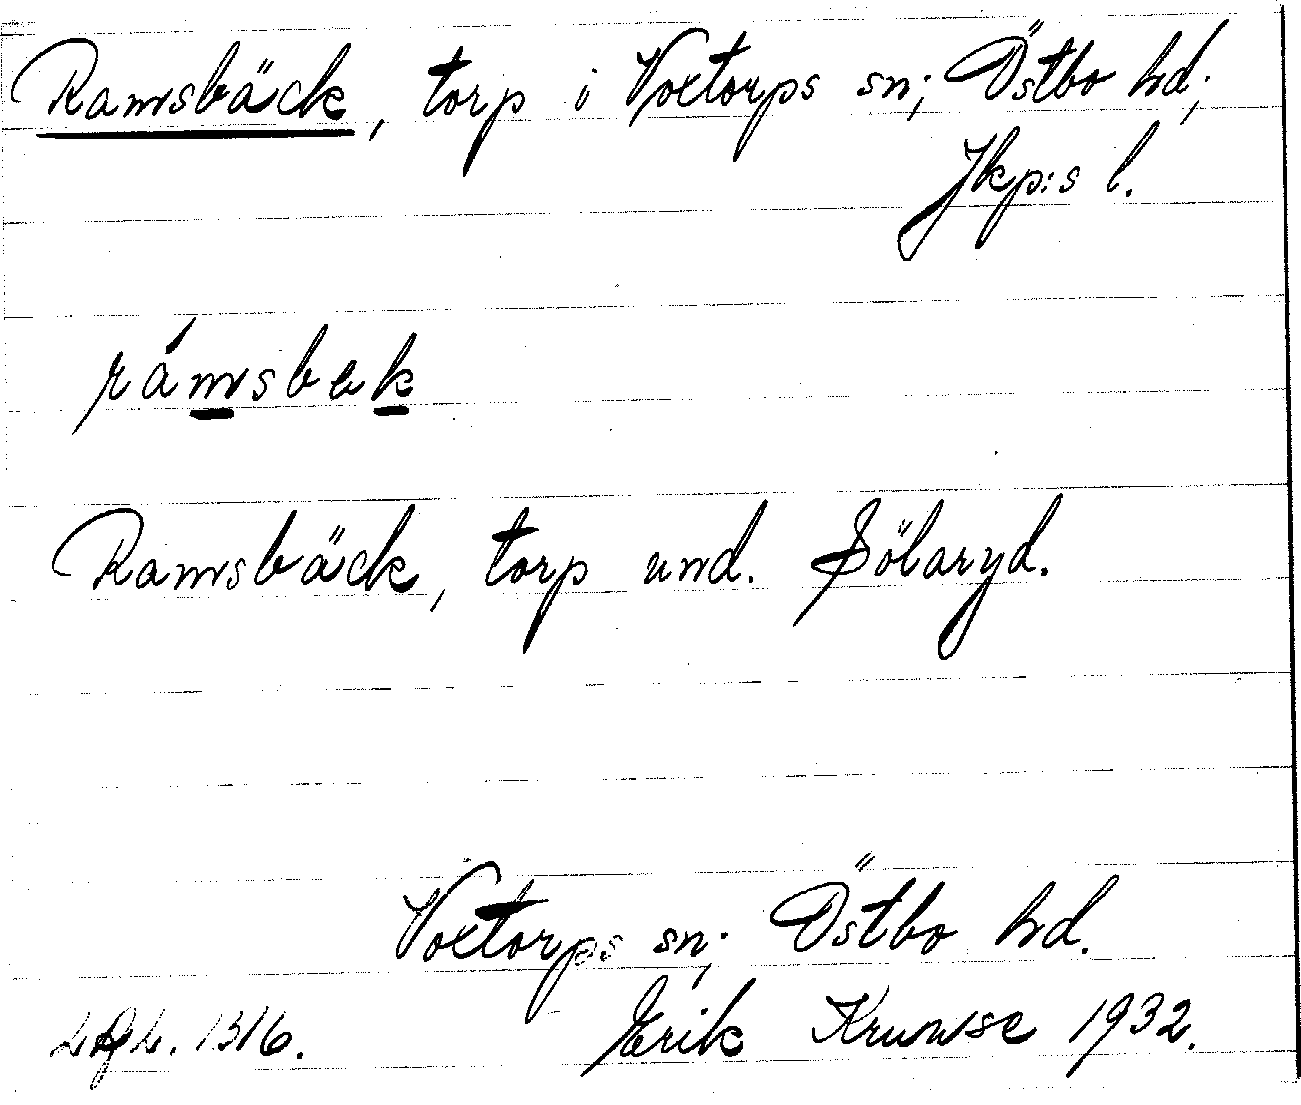 Ramsbäck, torp i Voxtorps sn; Östbo hd;
Jkp:s l.
rámsbæk
Ramsbäck, torp und. Sölaryd.
Voxtorps sn; Östbo hd.
1316. Erik Kruuse 1932.